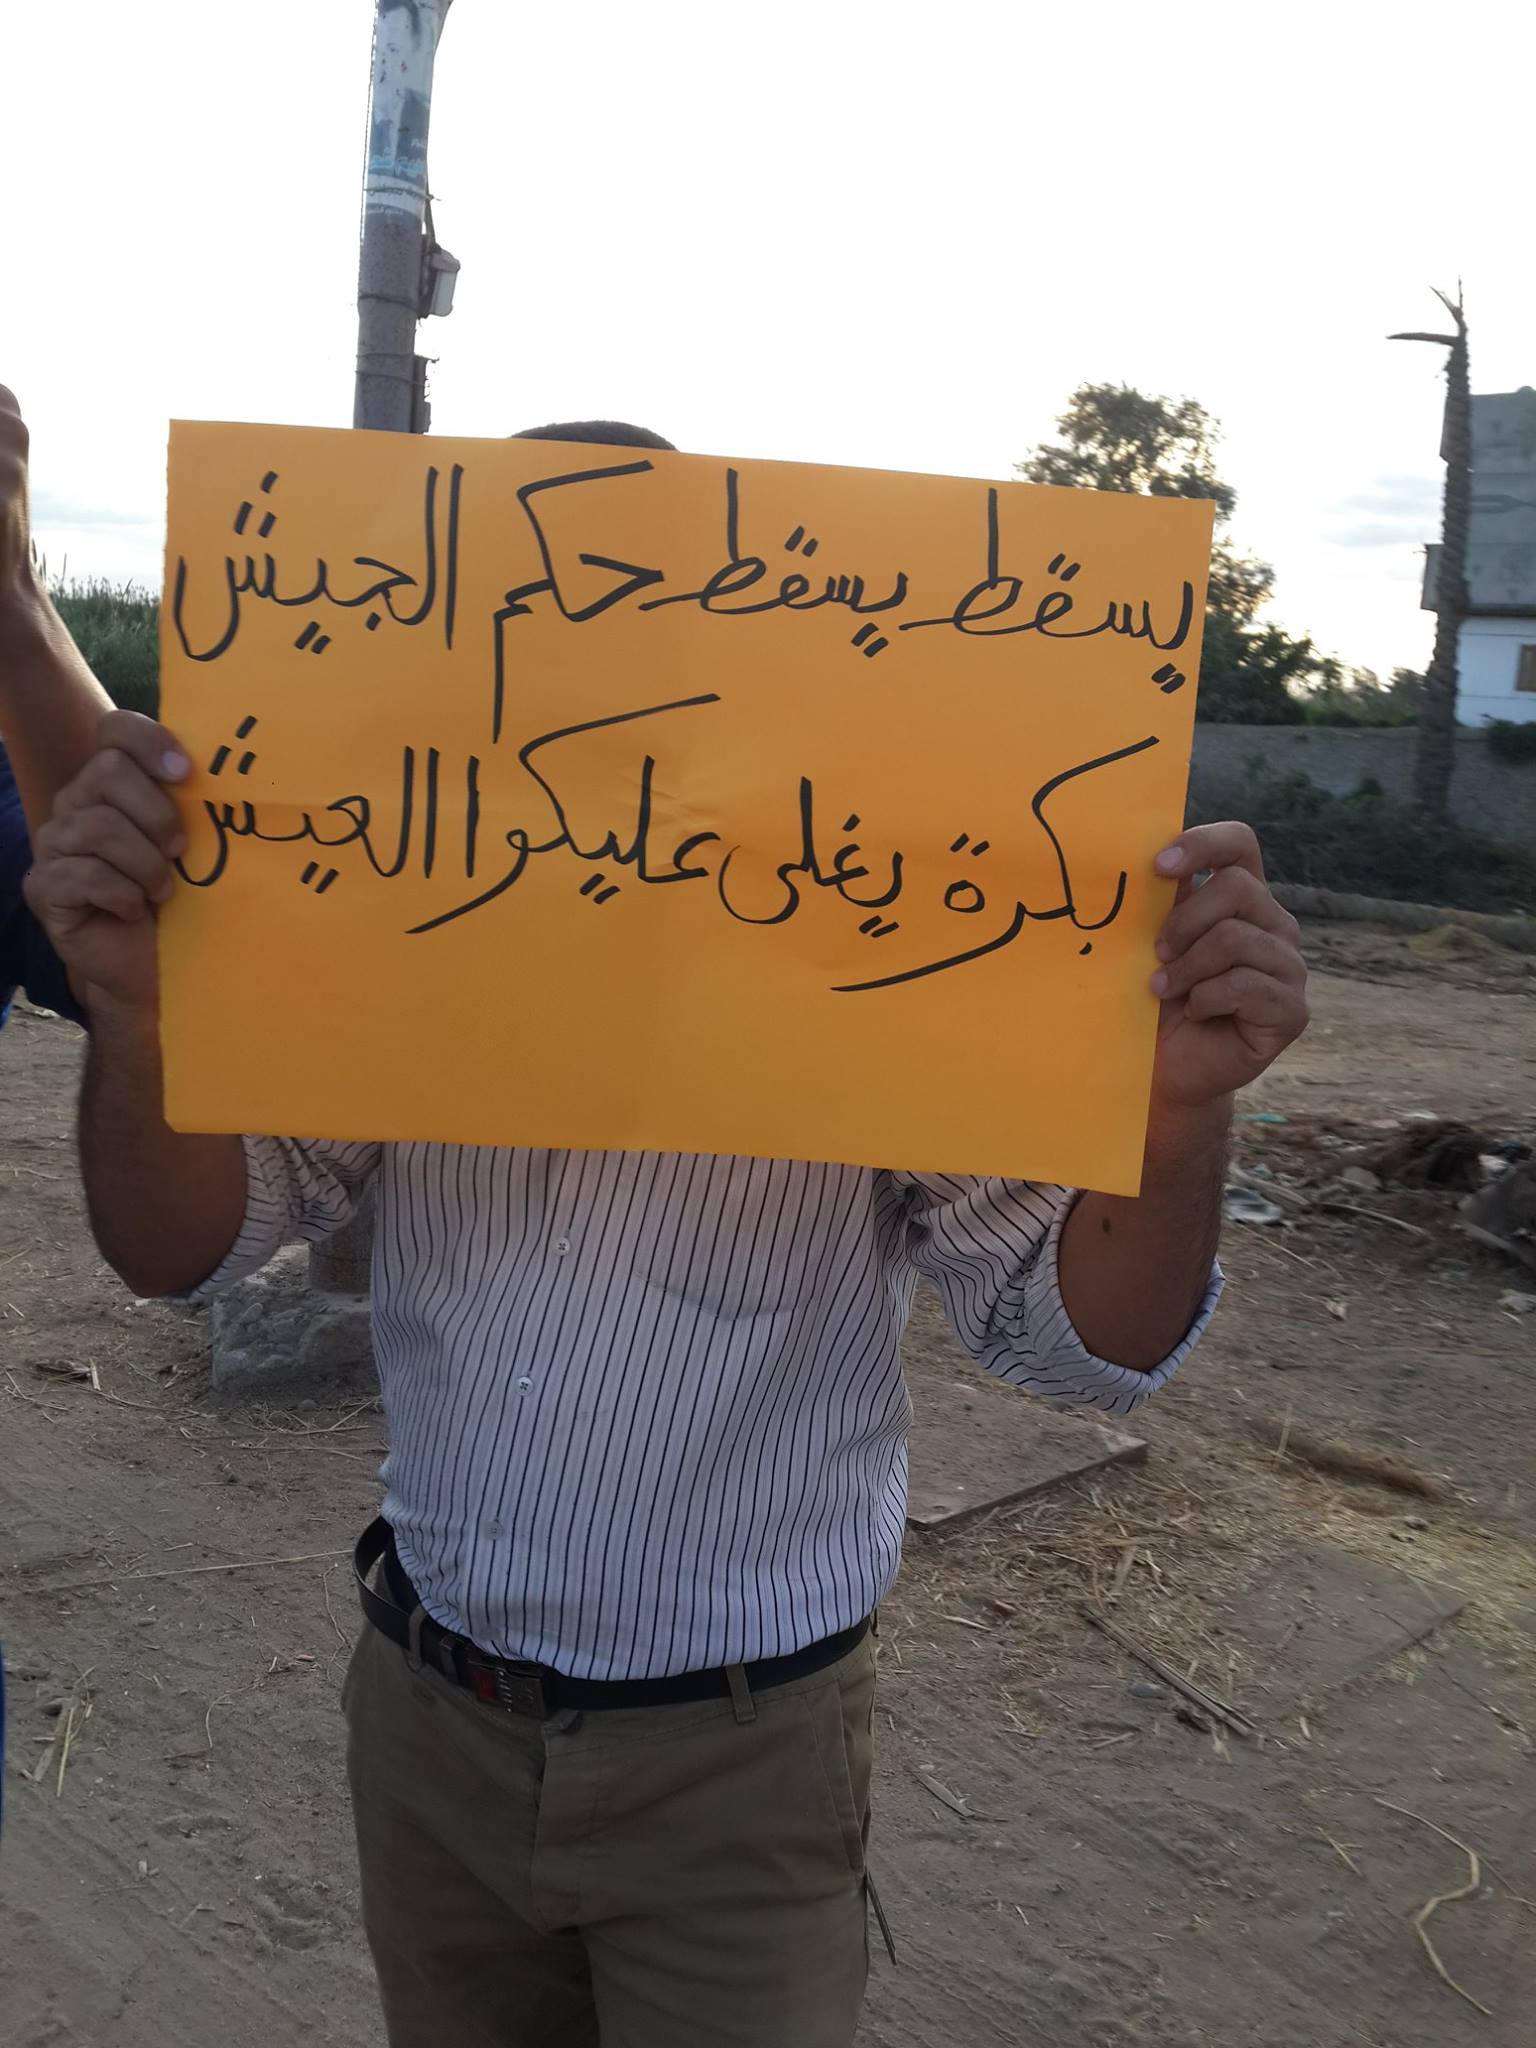 يسقط يسقط حكم الجيش
بكرة يغلى عليكوا العيش